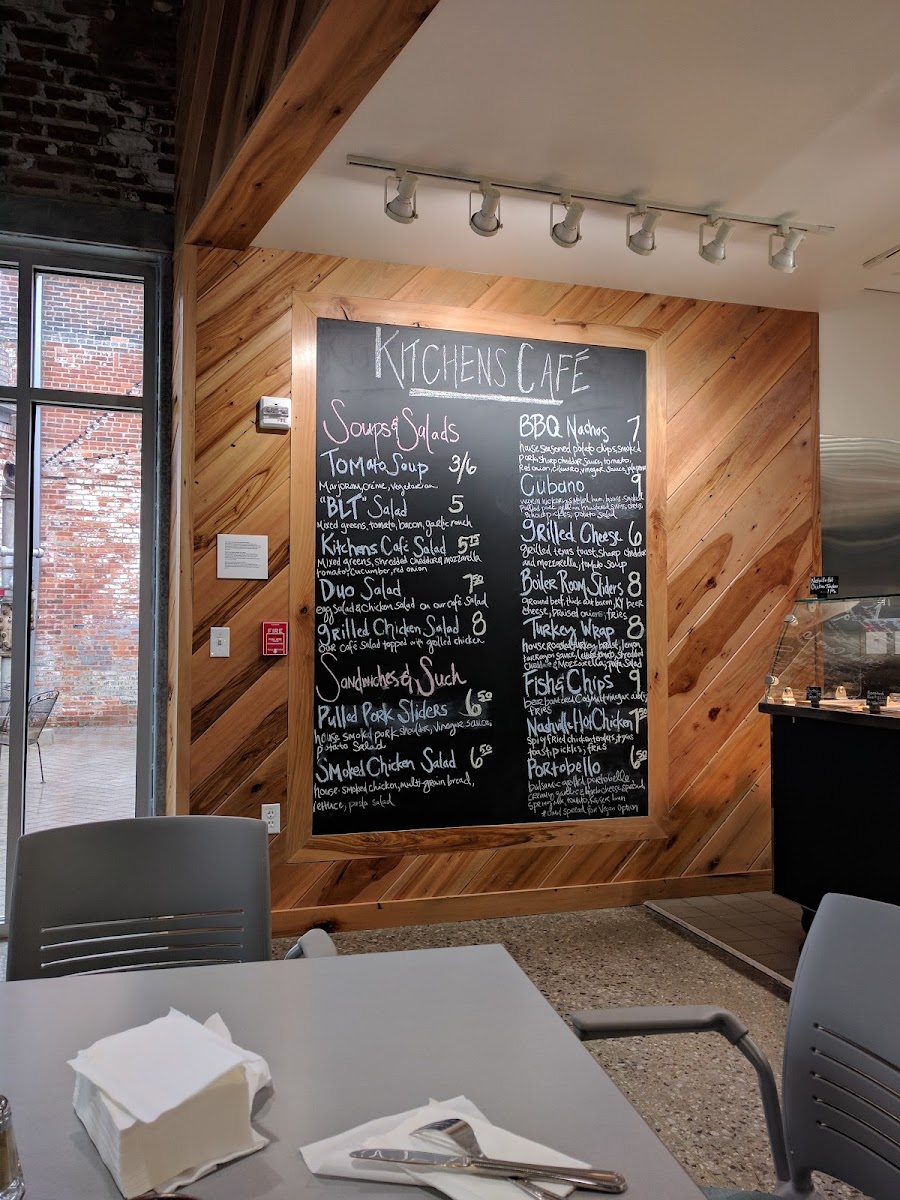 KITCHENS CAFÉ
Soups & Salads
Tomato Soup 3/6
Marjoram, crème, vegetarian
"BLT" Salad 5
Mixed greens, tomato, bacon, garlic ranch
Kitchens Café Salad
Mixed greens, shredded cheddar & mozzarella
tomato, cucumber, red onion
Duo Salad
egg salad & chicken salad on our café salad
grilled Chicken Salad 8
our café salad topped with grilled chicken
Sandwiches & Such
Pulled Pork Sliders 6.50
house smoked pork shoulder, vinegar sauce,
potato salad
Smoked Chicken Salad 6.50
house-smoked chicken, multi-grain bread,
lettuce, pasta salad
BBQ Nachos 7
house seasoned potato chips, smoked
pork, sharp cheddar sauce, tomato,
red onion, cilantro, vinegar sauce, jalapeno
Cubano 9
ham, house-smoked
pulled pork, mustard, swiss
pickles, potato salad
grilled Cheese 6
grilled texas toast, sharp cheddar
and mozzarella, tomato soup
Boiler Room Sliders 8
ground beef, thick cut bacon, KY beer
cheese, braised onions, fries
Turkey Wrap 8
house roasted turkey breast, lemon
tarragon sauce, lettuce, tomato, shredded
cheddar & mozzarella, pasta salad
Fish & Chips 9
beer battered Cod, malt vinegar aioli,
fries
Nashville Hot Chicken 7.50
spicy fried chicken tenders, texas
toast, pickles, fries
Portobello 6.50
balsamic grilled portobello
creamy garlic & herb cheese spread,
spring mix, tomato, bun
spread for Vegan option
FIRE